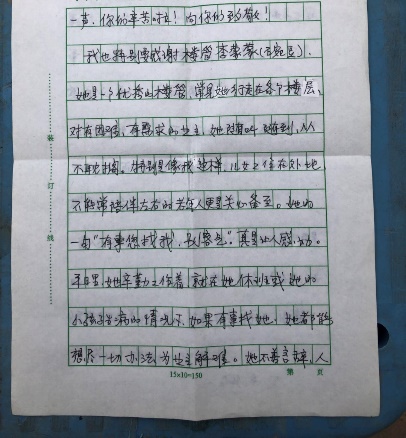 一声,你们辛苦啦!向你们致敬!
我也特别要感谢楼管李蒙蒙(音),
她是一个优秀的楼管,常见她行走在各个楼层,
对有困难,有需求的业主,她随叫随到,从
不耽搁。特别是像我这样,儿女不住在外地
不能常陪伴左右的老年人更是关心备至。她的
一句“有事您找我,别客气。”真是让人感动。
平日里她辛勤工作着,就在她休班或她的
小孩生病的情况下,如果有事找她,她都能
想尽一切办法为业主解难。她不善言辞,人
15×10=150
第 页
装 订 线